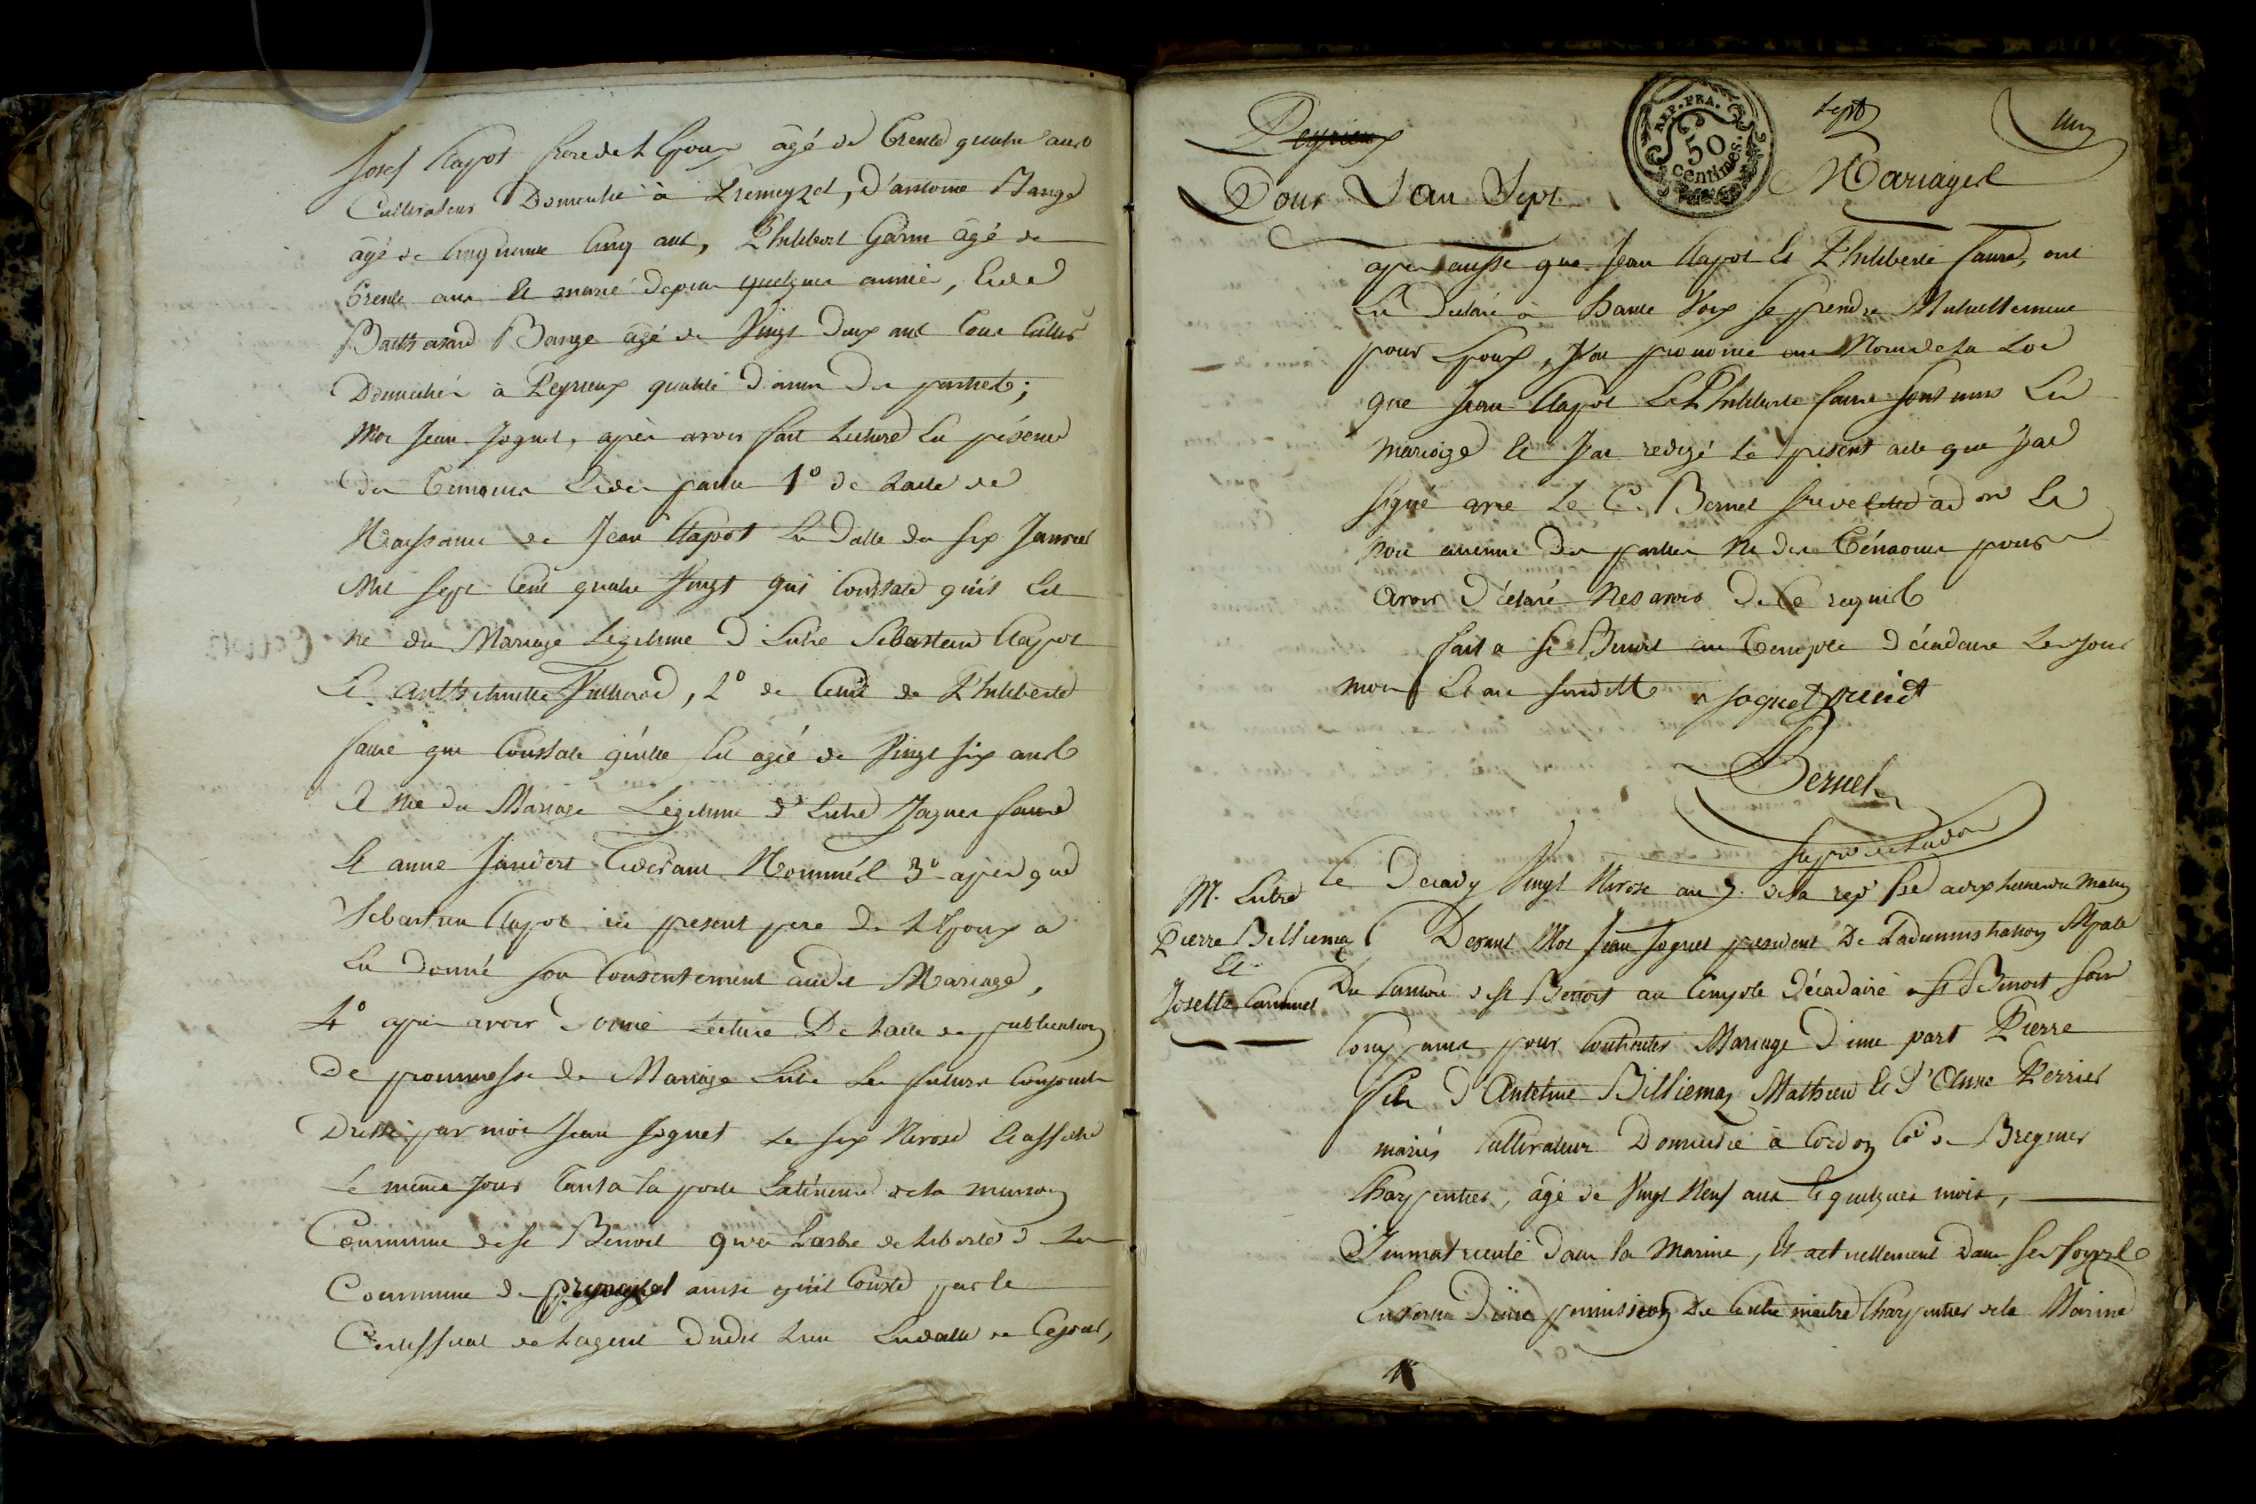 Josef Clapot frere de L'Epoux agé de Trente quatre ans
Cultivateur Domicilié à Premeyzel, D'antoine Bange
âgé de Cinquante Cinq ans, Philibert Garin âgé de
Trente ans et marié depuis quelques année, Et de
Balthazard Bange agé de Vingt Deux ans tous Cultr
Domiciliés à Peyrieux qualité D'amis des parties;
Moi Jean Joguet, après avoir fait Lecture En présence
des Temoins Et des parties 1° de Lacte de
Naissance de Jean Clapot En datte du six Janvier
Mil sept Cent quatre Vingt qui Constate qu'il Est
né du Mariage Legitime D'Entre Sebastien Clapot
Et Anthelmette, 2° de Celui de Philiberte
faure qui Constate qu'elle Est agée de Vingt six ans
Et née du Mariage Legitime d'Entre Jaques faure
Et anne Janvert Cidevant Nommés 3° après que
Sebastien Clapot ici present pere de L'Epoux a
Eu donné son Consentement audit Mariage,
4° après avoir Donné Lecture De Lacte de publication
De promesse de Mariage Entre Les futurs Conjoints
Dressé par moi Jean Joguet Le six Nivose Et affiché
Le même Jour Tant a la porte Extérieure de la maison
Commune de St Benoit qu'a Larbre de Liberté de La
Commune de premeyzel ainsi qu'il Conste par le
Certifficat de Lagent dudit Lieu En datte de Ce jour,
Peyrieux
sept
REP. FRA.
50
Centimes.
un
Pour L'an Sept
Mariages
après aussi que Jean Clapot Et Philiberte faure, ont
Eu Declaré a haute Voix se prendre Mutuellement
pour Epoux, J'ai prononcé au Nom de la Loi
que Jean Clapot Et Philiberte faure sont unis En
mariage Et J'ai redigé Le présent acte que J'ai
signé avec Le C. Bernet Et
non aucune des parties Ni des Témoins pour
avoir Déclaré Ne savoir De Ce requis
fait a St Benoit au Temple Décadaire Les Jour
mois Et an susdits Joguet presidt
Bernet
M. Entre
Pierre Billiemaz
Et
Josette Carminet
Le Decady Vingt Nivose an 7. de la rep. fse a dix heures du Matin
Devant Moi Jean Joguet president De Ladministration Mpale
Du Canton de St Benoit au Temple Décadaire a St Benoit sont
Comparus pour Contracter Mariage D'une part Pierre
fils D'Antelme Billiemaz Mathieu Et d'Anne Perrier
mariés Cultivateur Domicilié à Cordon Cne de Bregnier
Charpentier, âgé de Vingt Neuf ans Et quelques mois,
Immatriculé dans la Marine, Et actuellement dans ses foyers
En vertu D'une permission De Contre maitre Charpentier de la Marine